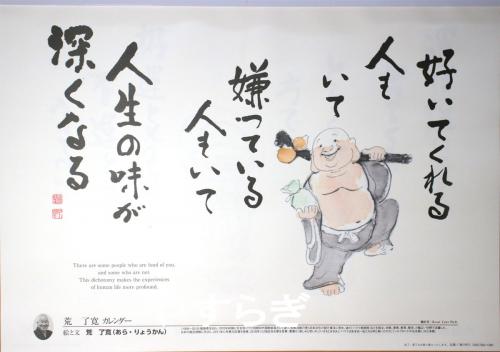 好いてくれる
人も
いて
嫌っている
人もいて
人生の味が
深くなる
There are some people who are fond of you,
and some who are not.
This dichotomy makes the experiences
of human life more profound.
すらぎ
荒 了寛 カレンダー
絵と文 荒 了寛(あら・りょうかん)